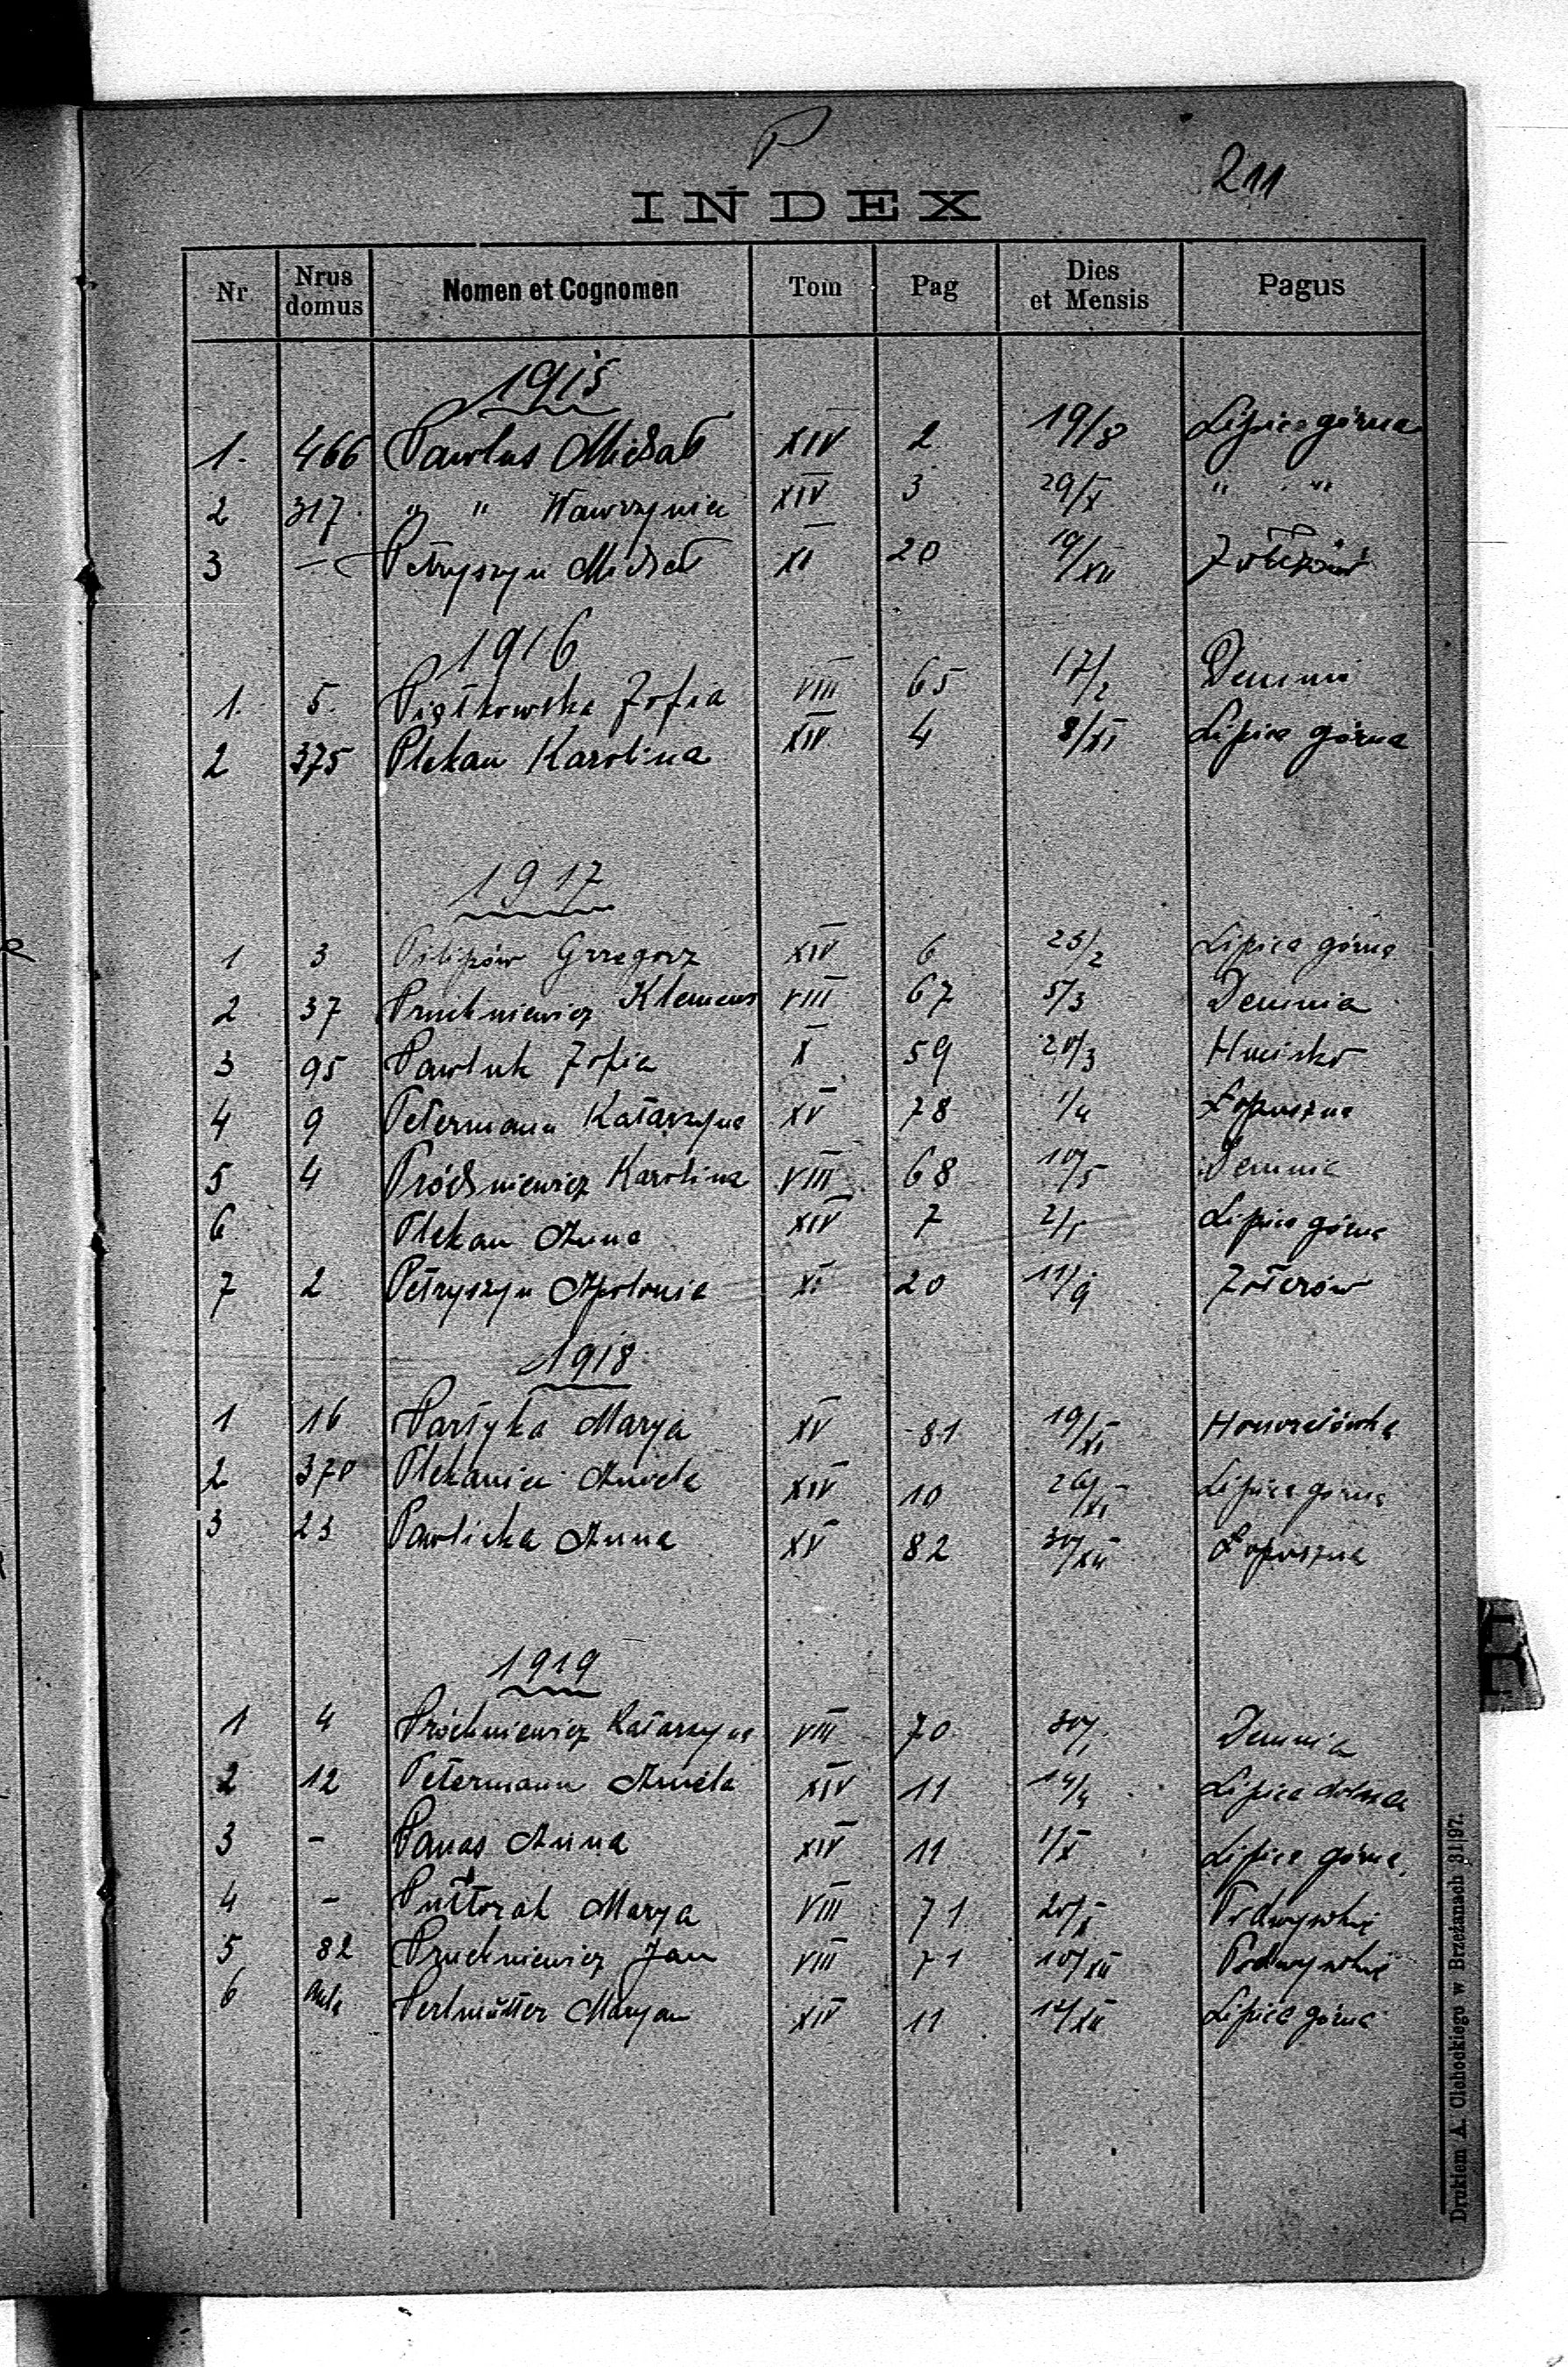 P
211
INDEX
Nr Nrus domus Nomen et Cognomen Tom Pag Dies et Mensis Pagus
1915
1. 466 Pawlus Michał XIV 2 19/8 Lipica górna
2 317. " " Wawrzyniec XIV 3 29/X " "
3 — Petryszyn Michał XI 20 19/XII
1916
1. 5. Piątkowska Zofia VIII 65 17/2 Demnia
2 375 Plekan Karolina XIV 4 8/XI Lipica górna
1917
1 3 Pilipów Grzegorz XIV 6 23/2 Lipica górna
2 37 Pruchniewicz Klemens VIII 67 5/3 Demnia
3 95 Pawluk Zofia X 59 20/3
4 9 Petermann Katarzyna XV 78 1/4 Łopuszna
5 4 Próchniewicz Karolina VIII 68 10/5 Demnia
6 Plekan Anna XIV 7 2/5 Lipica górna
7 2 Petryszyn Apolonia XI 20 11/9 Zołczów
1918
1 16 Partyka Marya XV 81 19/XI Honoratówka
2 370 Plekaniec Aniela XIV 10 26/XI Lipica górna
3 23 Pawlicka Anna XV 82 30/XII Łopuszna
1919
1 4 Próchniewicz Katarzyna VIII 70 30/1 Demnia
2 12 Petermann Aniela XIV 11 14/4 Lipica dolna
3 - Panas Anna XIV 11 1/X Lipica górna
4 - Pułtorak Marya VIII 71 20/X Podwysokie
5 82 Pruchniewicz Jan VIII 71 10/XII Podwysokie
6 Perlmutter Maryan XIV 11 12/XII Lipica górna
Drukiem A. Cichockiego w Brzeżanach 31|97.
R